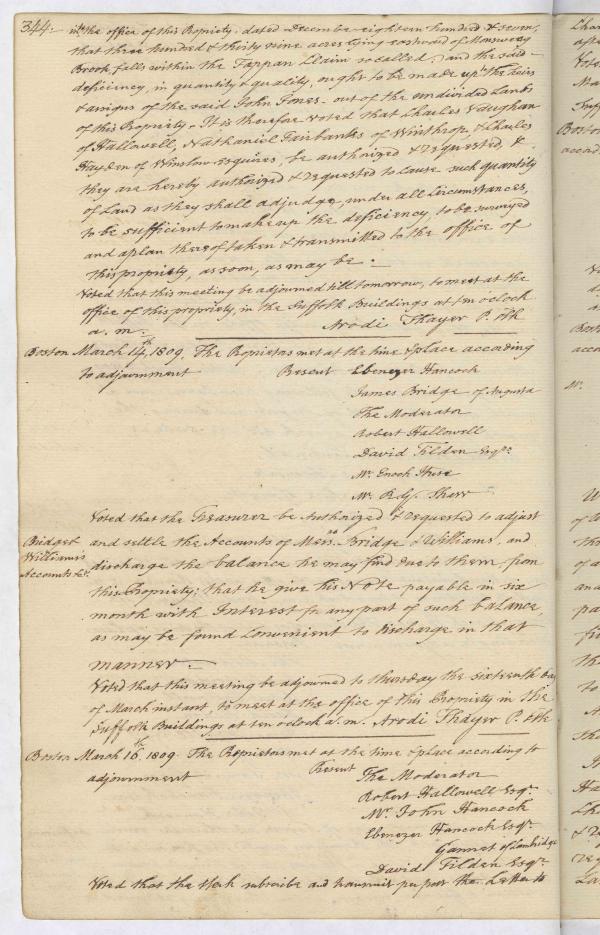 344.
into the office of this Propriety. dated December eighteen hundred & seven,
that three hundred & thirty nine acres lying eastward of
Brook, falls within the Tappan Claim so called, and the said
deficiency, in quantity & quality, ought to be made up to the heirs
& assigns of the said John Jones, out of the undivided Lands
of this Propriety. It is therefore Voted that Charles Vaughan
of Hallowell, Nathaniel Fairbanks of Winthrop, & Charles
Hayden of Winslow Esquires, be authorized & requested, &
they are hereby authorized & requested to cause such quantity
of Land as they shall adjudge, under all Circumstances,
to be sufficient to make up the deficiency, to be surveyed
and a plan thereof taken & transmitted to the office of
this propriety, as soon, as may be.
Voted that this meeting be adjourned till tomorrow, to meet at the
office of this propriety, in the Suffolk Buildings at ten o'clock
a. m. Arodi Thayer P. Clk
Boston March 14th, 1809. The Proprietors met at the time & place according
to adjournment Present Ebenezer Hancock
James Bridge of Augusta
The Moderator
Robert Hallowell
David Tilden Esqrs.
Mr. Enoch Huse
Mr. R. G. Shaw
Voted that the Treasurer be Authorized & requested to adjust
Bridge &
Williams's
Accounts &c.
and settle the Accounts of Messrs. Bridge & Williams, and
discharge the balance he may find due to them, from
this Propriety; that he give his Note payable in six
month with Interest for any part of such balance
as may be found Convenient to discharge in that
manner.
Voted that this meeting be adjourned to thursday the sixteenth day
of March instant, to meet at the office of this Propriety in the
Suffolk Buildings at ten o'clock a. m. Arodi Thayer P. Clk
Boston March 16th, 1809. The Proprietors met at the time & place according to
adjournment Present The Moderator
Robert Hallowell Esqr.
Mr. John Hancock
Ebenezer Hancock Esqr.
Gannet of Cambridge
David Tilden Esqr.
Voted that the Clerk subscribe and transmit per post the Letter to